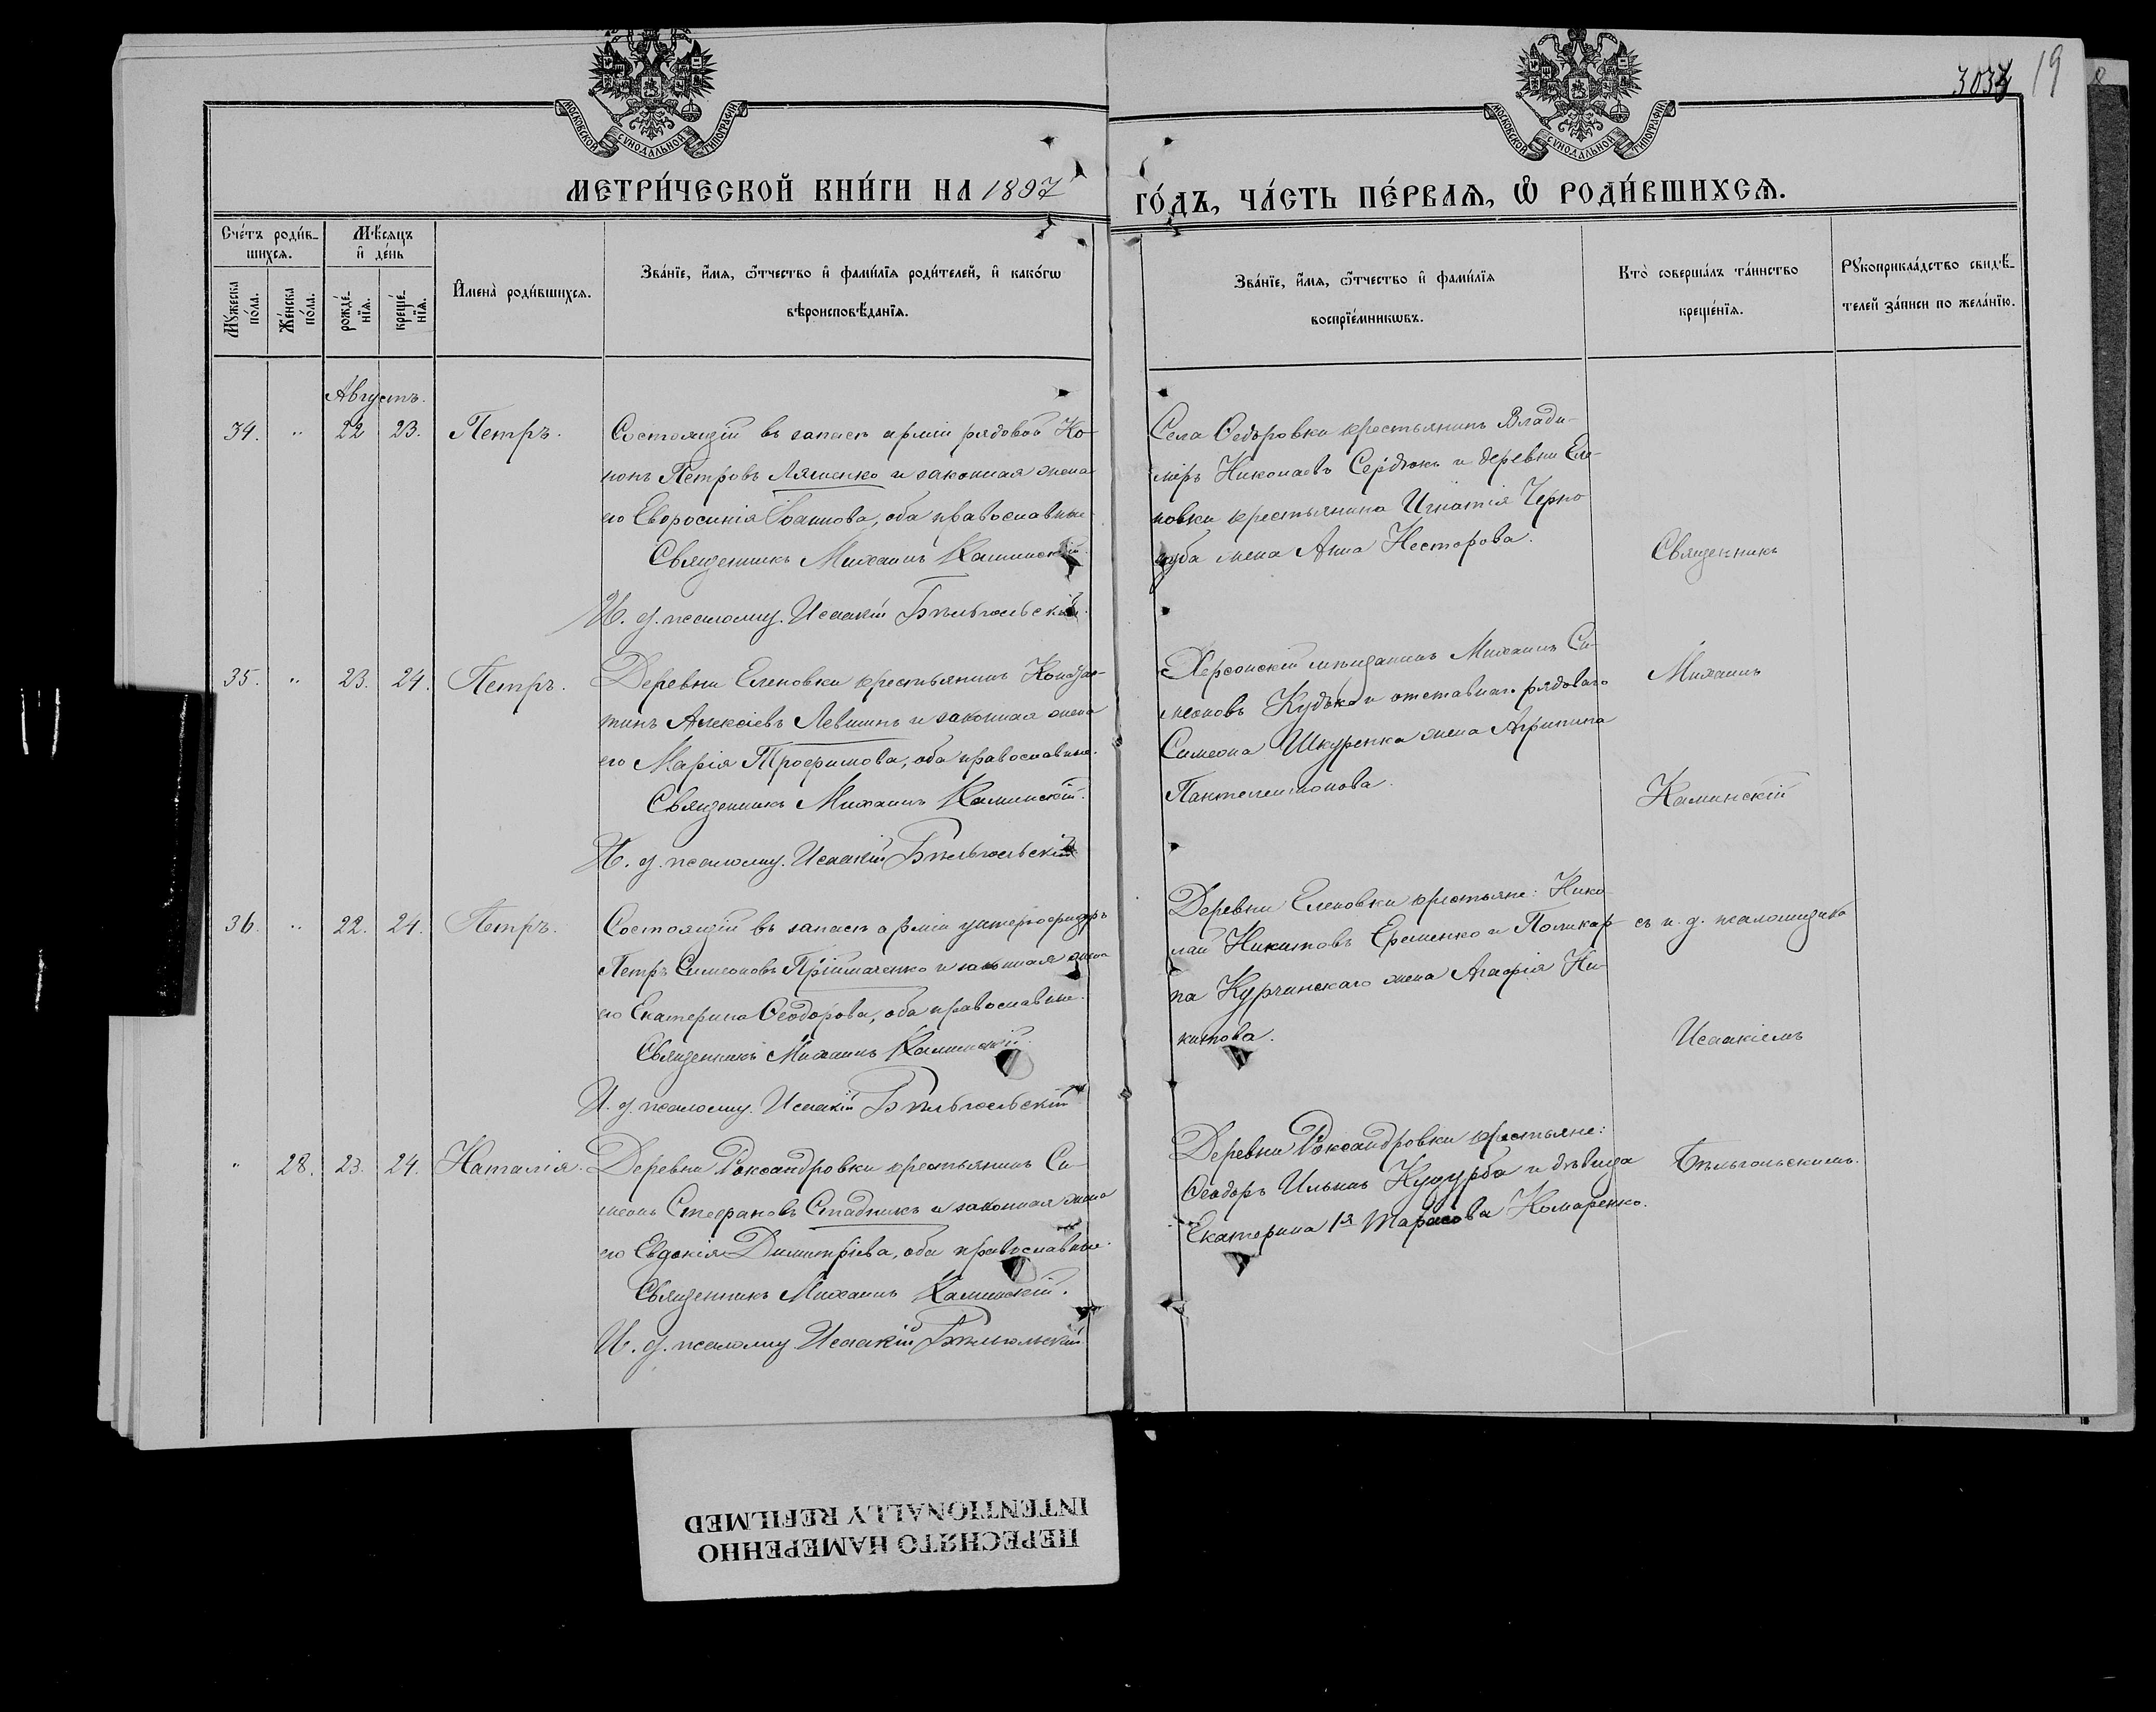 3037
19
МОСКОВСКОЙ СѴНОДАЛЬНОЙ ТИПОГРАФІИ
МОСКОВСКОЙ СѴНОДАЛЬНОЙ ТИПОГРАФІИ
МЕТРИ́ЧЕСКОЙ КНИ́ГИ НА 1897
ГО́ДЪ, ЧА́СТЬ ПЕ́РВАѦ, Ѡ҆ РОДИ́ВШИХСѦ.
Сче́тъ роди́в-
шихся.
Мѣ́сяцъ
и҆ де́нь
Мꙋ́жеска по́ла.
Же́нска по́ла.
рожде́-
нїѧ.
креще́-
нїѧ.
И҆мена̀ роди́вшихся.
Зва́нїе, и҆́мѧ, ѻ҆́тчество и҆ фами́лїѧ роди́телей, и҆ како́гѡ
вѣроисповѣ́данїѧ.
Зва́нїе, и҆́мѧ, ѻ҆́тчество и҆ фами́лїѧ
воспрїе́мникѡвъ.
Кто̀ соверша́лъ та́инство
креще́нїѧ.
Рꙋкоприкла́дство свидѣ́-
телей за́писи по жела́нїю.
Августъ.
34. " 22 23. Петръ.
Состоящій въ запасѣ арміи рядовой Ко-
нонъ Петровъ Ляшенко и законная жена
его Евфросинія Іоаннова, оба православные.
Священникъ Михаилъ Каминскій.
И. д. псаломщ. Исаакій Бѣльгольскій.
Села Ѳедоровки крестьянинъ Влади-
міръ Николаевъ Сердюкъ и деревни Еле-
новки крестьянина Игнатія Черно-
жена Анна Несторова.
35. " 23. 24. Петръ.
Деревни Еленовки крестьянинъ Кондра-
тинъ Алексіевъ Левшинъ и законная жена
его Марія Трофимова, оба православные.
Священникъ Михаилъ Каминскій.
И. д. псаломщ. Исаакій Бѣльгольскій
Херсонскій мѣщанинъ Михаилъ Си-
меоновъ Кудько и отставнаго рядоваго
Симеона Шкуренка жена Агрипина
Пантелеимонова.
36. " 22. 24. Петръ.
Состоящій въ запасѣ арміи унтерофицеръ
Петръ Симеоновъ Прійтаченко и законная жена
его Екатерина Ѳеодорова, оба православные.
Священникъ Михаилъ Каминскій.
И. д. псаломщ. Исаакій Бѣльгольскій
Деревни Еленовки крестьяне: Нико-
лай Никитовъ Еременко и Поликар-
па Курчинскаго жена Агафія Ни-
китова.
" 28. 23. 24. Наталія.
Деревни Роксандровки крестьянинъ Си-
меонъ Стефановъ Стадникъ и законная жена
его Евдокія Димитріева, оба православные.
Священникъ Михаилъ Каминскій.
И. д. псаломщ. Исаакій Бѣльгольскій
Деревни Роксандровки крестьяне:
Ѳеодоръ Ильинъ и дѣвица
Екатерина 1я Тарасова Комаренко.
Священникъ
Михаилъ
Каминскій
съ и. д. псаломщика
Исаакіемъ
Бѣльгольскимъ.
ПЕРЕСНЯТО НАМЕРЕННО
INTENTIONALLY REFILMED